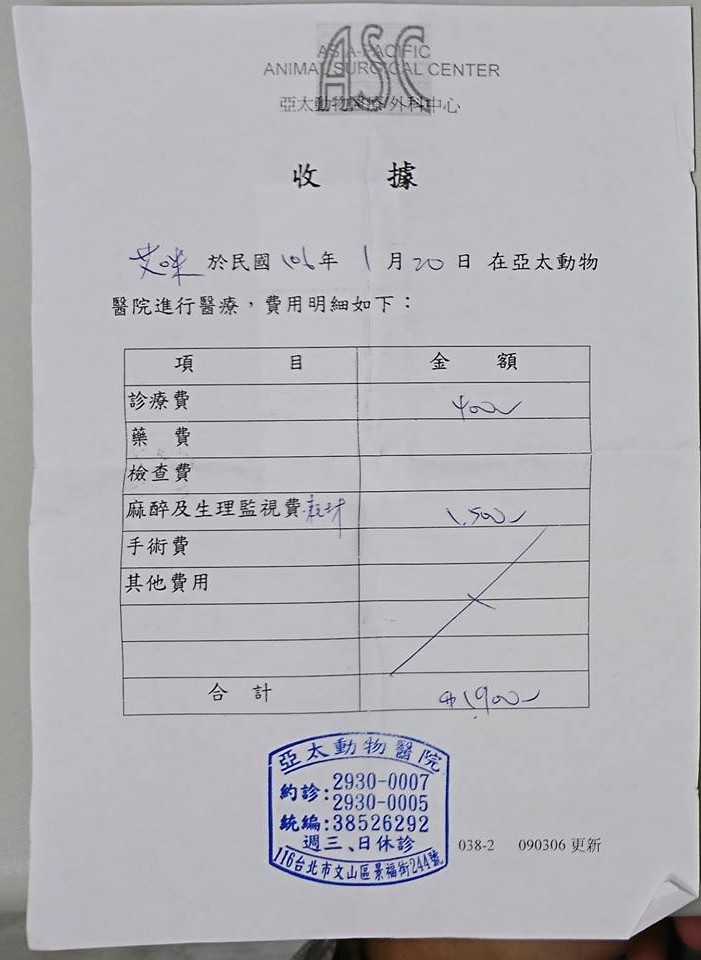 ASC
ASIA-PACIFIC
ANIMAL SURGICAL CENTER
亞太動物醫療/外科中心
收 據
艾咪 於民國 106 年 1 月 20 日 在亞太動物
醫院進行醫療，費用明細如下：
項 目 金 額
診療費 400
藥 費
檢查費
麻醉及生理監視費 1,500
手術費
其他費用
合 計 1,900
亞太動物醫院
約診:2930-0007
2930-0005
統編:38526292
週三、日休診
116台北市文山區景福街244號
038-2 090306 更新